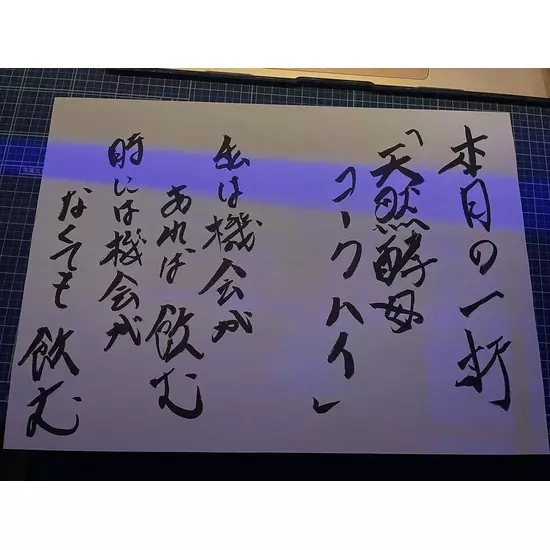 本日の一杯
「天然酵母
コークハイ」
私は機会が
あれば飲む
時には機会が
なくても飲む